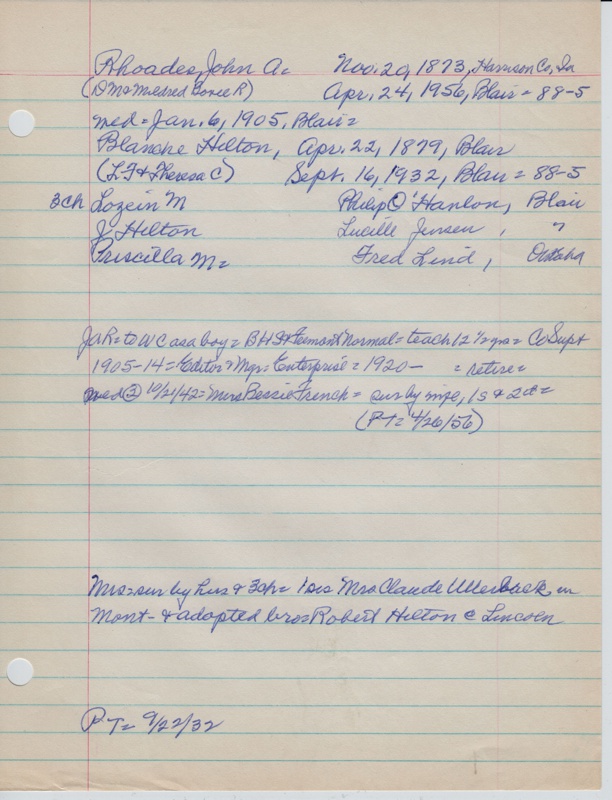 Rhoades, John A= Nov. 20, 1873, Harrison Co, Ia
(D M & Mildred R) Apr. 24, 1956, Blair = 88-5
med = Jan. 6, 1905, Blair =
Blanche Hilton, Apr. 22, 1879, Blair
(L.F & Theresa C) Sept. 16, 1932, Blair = 88-5
3 ch Lozein M Philip O'Hanlon, Blair
J. Hilton Lucille Jensen, "
Priscilla M= Fred Lind, Omaha
JaR = to W C as a boy = BHS & Fremont Normal = teach 12 ½ yrs = Co Supt
1905-14 = Editor = Mgr = Enterprise = 1920- = retire =
med ② 10/21/42 = Mrs Bessie French = sur by wife, 1s & 2d =
(PT= 4/26/56)
Mrs = sur by hus & 3ch = 1 sis Mrs Claude Utterback in
Mont - & adopted bros Robert Hilton @ Lincoln
PT= 9/22/32